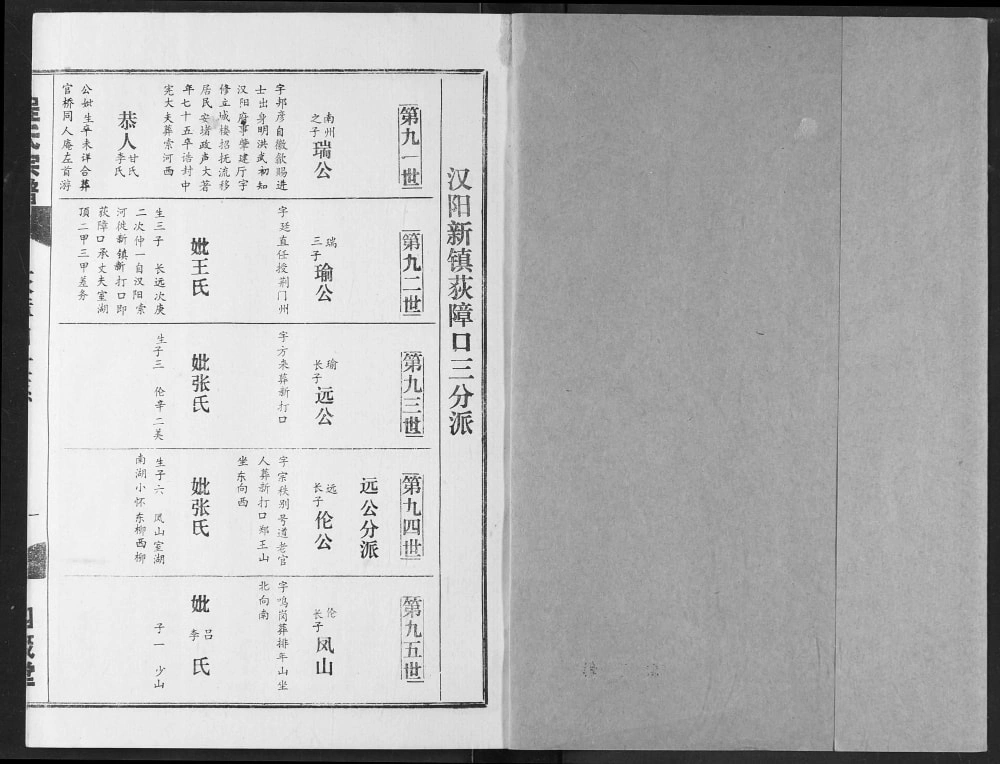 汉阳新镇荻障口三分派
第九一世
南州
之子
瑞公
字邦彦自徽歙赐进
士出身明洪武初知
汉阳府事肇建厅宇
修立城楼招抚流移
居民安堵政声大著
年七十五卒诰封中
宪大夫葬索河西
恭人
甘氏
李氏
公妣生卒未详合葬
官桥同人庵左首游
第九二世
瑞
三子
瑜公
字廷直任授荆门州
妣王氏
生三子 长远次庚
二次仲一自汉阳索
河徙新镇新打口即
荻障口承丈夫室湖
顶二甲三甲差务
第九三世
瑜
长子
远公
字方来葬新打口
妣张氏
生子三 伦辛二美
第九四世
远公分派
远
长子
伦公
字宗秩别号道老官
人葬新打口郑王山
坐东向西
妣张氏
生子六 凤山室湖
南湖小怀东柳西柳
第九五世
伦
长子
凤山
字鸣岗葬排年山坐
北向南
妣
吕
李
氏
子一 少山
一